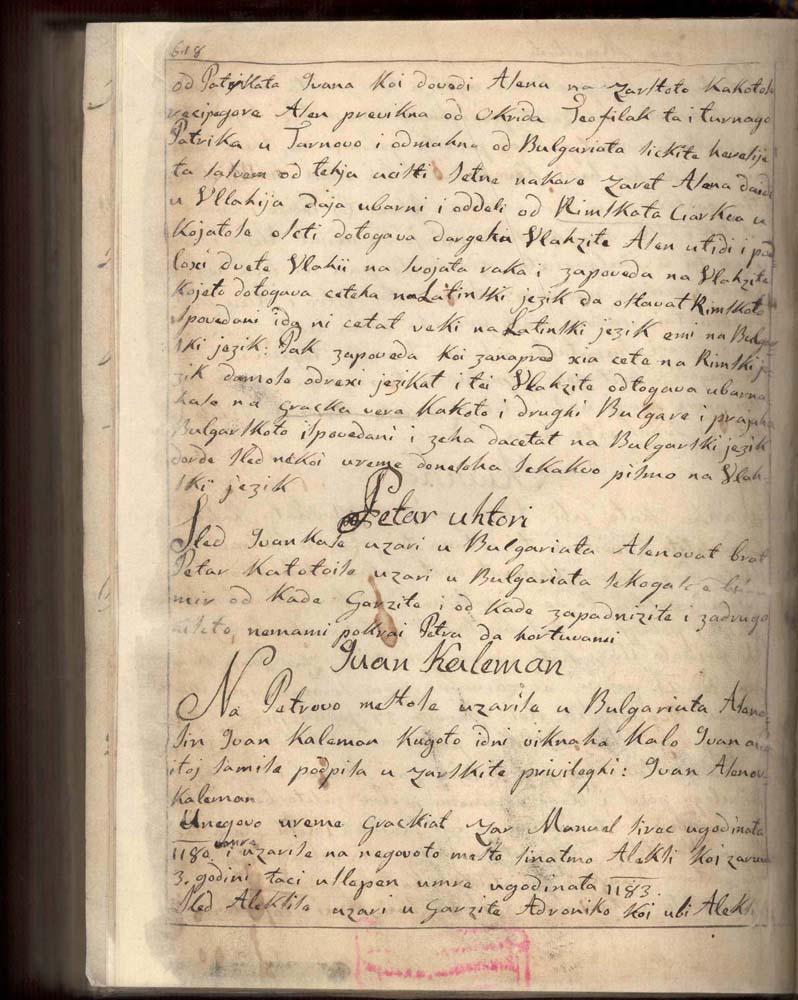 618
od Patrikata Ivana Koi dovedi Asena na Zarstoto Kakotose
recipogore Asen previkna od Okrida Teofilak ta i turnago
Patrika u Tarnovo i odmahna od Bulgariata sickite heresije
ta satvem od tehja cicsti setne nakare Zaret Asena daidi
u Vllahija daja ubarni i oddeli od Rimskata Ciarkva u
Kojatose osseti dotogava dargeha Vlahzite Asen utidi i pod
loxi dvete Vlahii na svojata raka i zapoveda na Vlahzite
Kojeto dotogava cetcha na Latinski jezik da ostavat Rimskoto
ispovedani ida ni cetat veki na Latinski jezik emi na Bulgar
ski jezik: Pak zapoveda koi zanapred xia cete na Rimski je
zik damose odrexi jezikat i tei Vlahzite odtogava ubarna
hase na gracka vera Kakoto i drughi Bulgare i prajaha
Bulgarskoto ispovedani i zeha dacetat na Bulgarski jezik
dorde sled nekoi vreme donesoha sekakvo pismo na Vlah-
skij jezik
Petar vhtori
Sled Ivankase uzari u Bulgariata Asenovat brat
Petar Katotoise uzari u Bulgariata sekogase
mir od Kade Garzite i od Kade zapadnizite i zadrugo
nemami pokrai Petra da hortuvami
Ivan Kaleman
Na Petrovo mestose uzarise u Bulgariata Aseno-
sin Ivan Kaleman Kugoto idni viknaha Kalo Ivan a
itoj samise podpisa u zarskite privileghi: Ivan Asenov
Kaleman
Unegovo vreme grackiat Zar Manuel ugodinata
1180 umre i uzarise na negovoto mesto sinatmo Aleksi Koi zarova
3. godini taci uslepen umre ugodinata 1183.
Sled Aleksisa uzari u Garzite Adroniko Koi ubi Aleksi